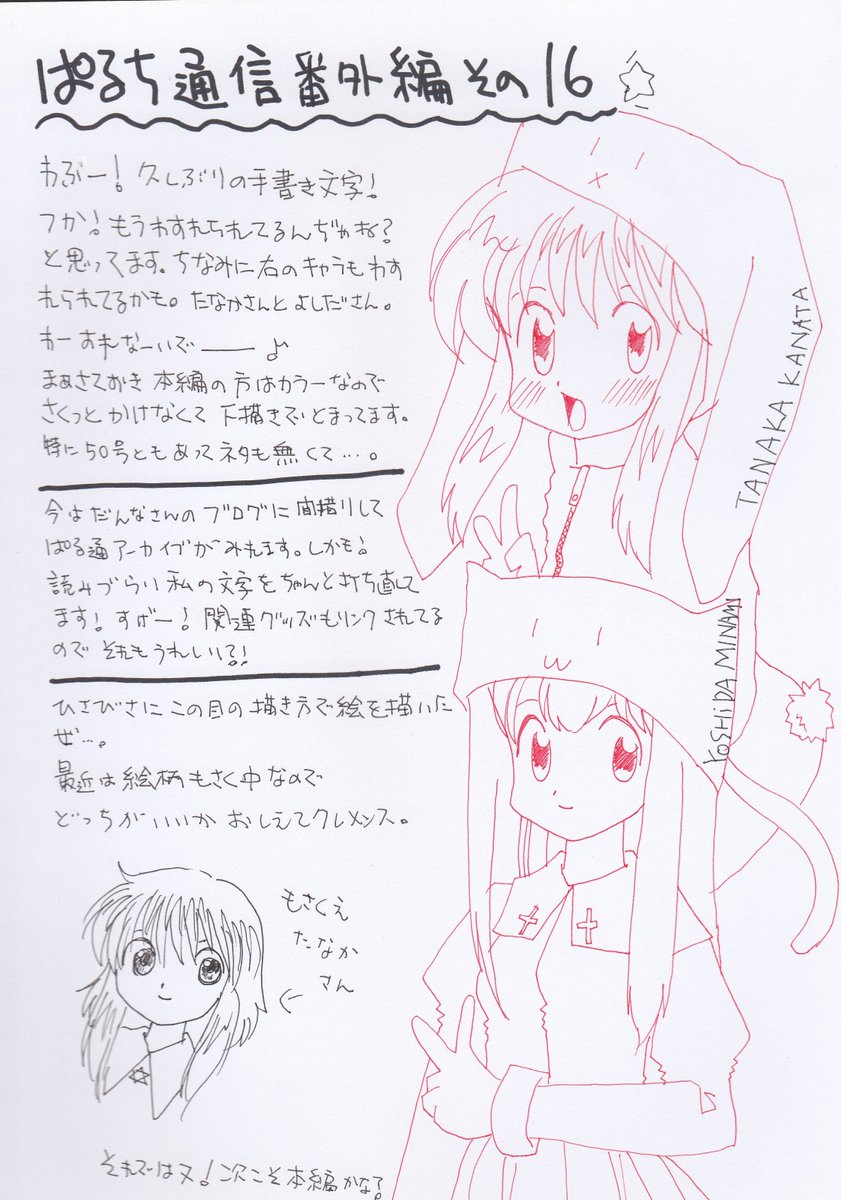 ぱるち通信番外編その16
わぶー!久しぶりの手書き文字!
つか!もうわすれられてるんぢゃね?
と思ってます。ちなみに右のキャラもわす
れられてるかも。たなかさんとよしださん。
わーすれなーいでーー♪
まぁさておき本編の方はカラーなので
さくっとかけなくて下描きでとまってます。
特に50号ともあってネタも無くて…。
今はだんなさんのブログに間借りして
ぱる通アーカイブがみれます。しかも!
読みづらい私の文字をちゃんと打ち直して
ます!すげー!関連グッズもリンクされてる
ので それもうれしい!?!
ひさびさにこの目の描き方で絵を描いた
ぜ…。
最近は絵柄もさく中なので
どっちがいいか おしえてクレメンス。
もさくえ
たなか
さん
それではヌ!次こそ本編かな?
TANAKA KANATA
YOSHIDA MINAMI